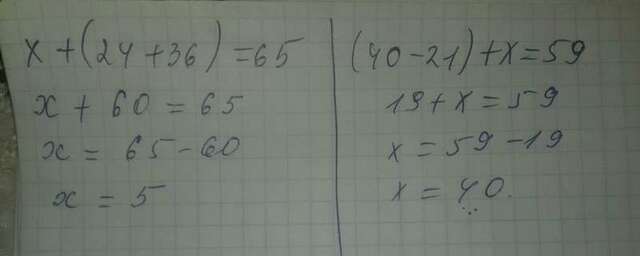 x + (24 + 36) = 65
x + 60 = 65
x = 65 - 60
x = 5
(40 - 21) + x = 59
19 + x = 59
x = 59 - 19
x = 40.